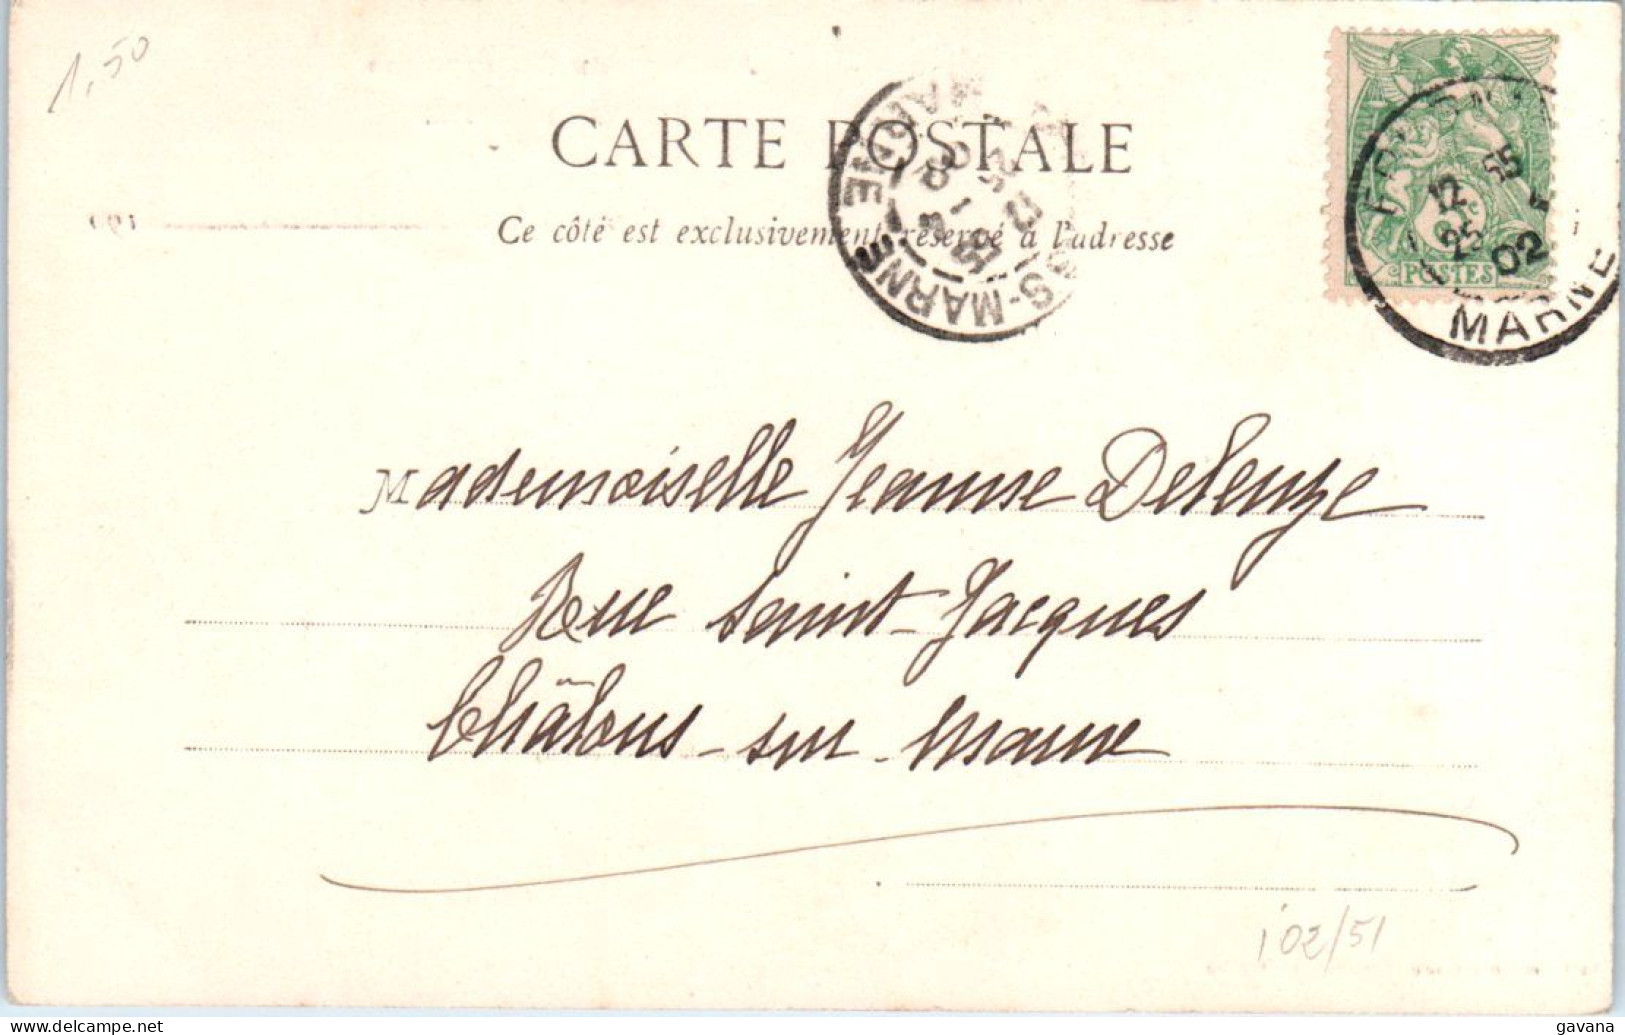 1,50
CARTE POSTALE
Ce côté est exclusivement réservé à l'adresse
MARNE
S-MARNE
12 55
25 02
MARNE
5c
POSTES
Mademoiselle Jeanne Deleuze
Rue Saint-Jacques
Châlons-sur-Marne
102/51
gavana